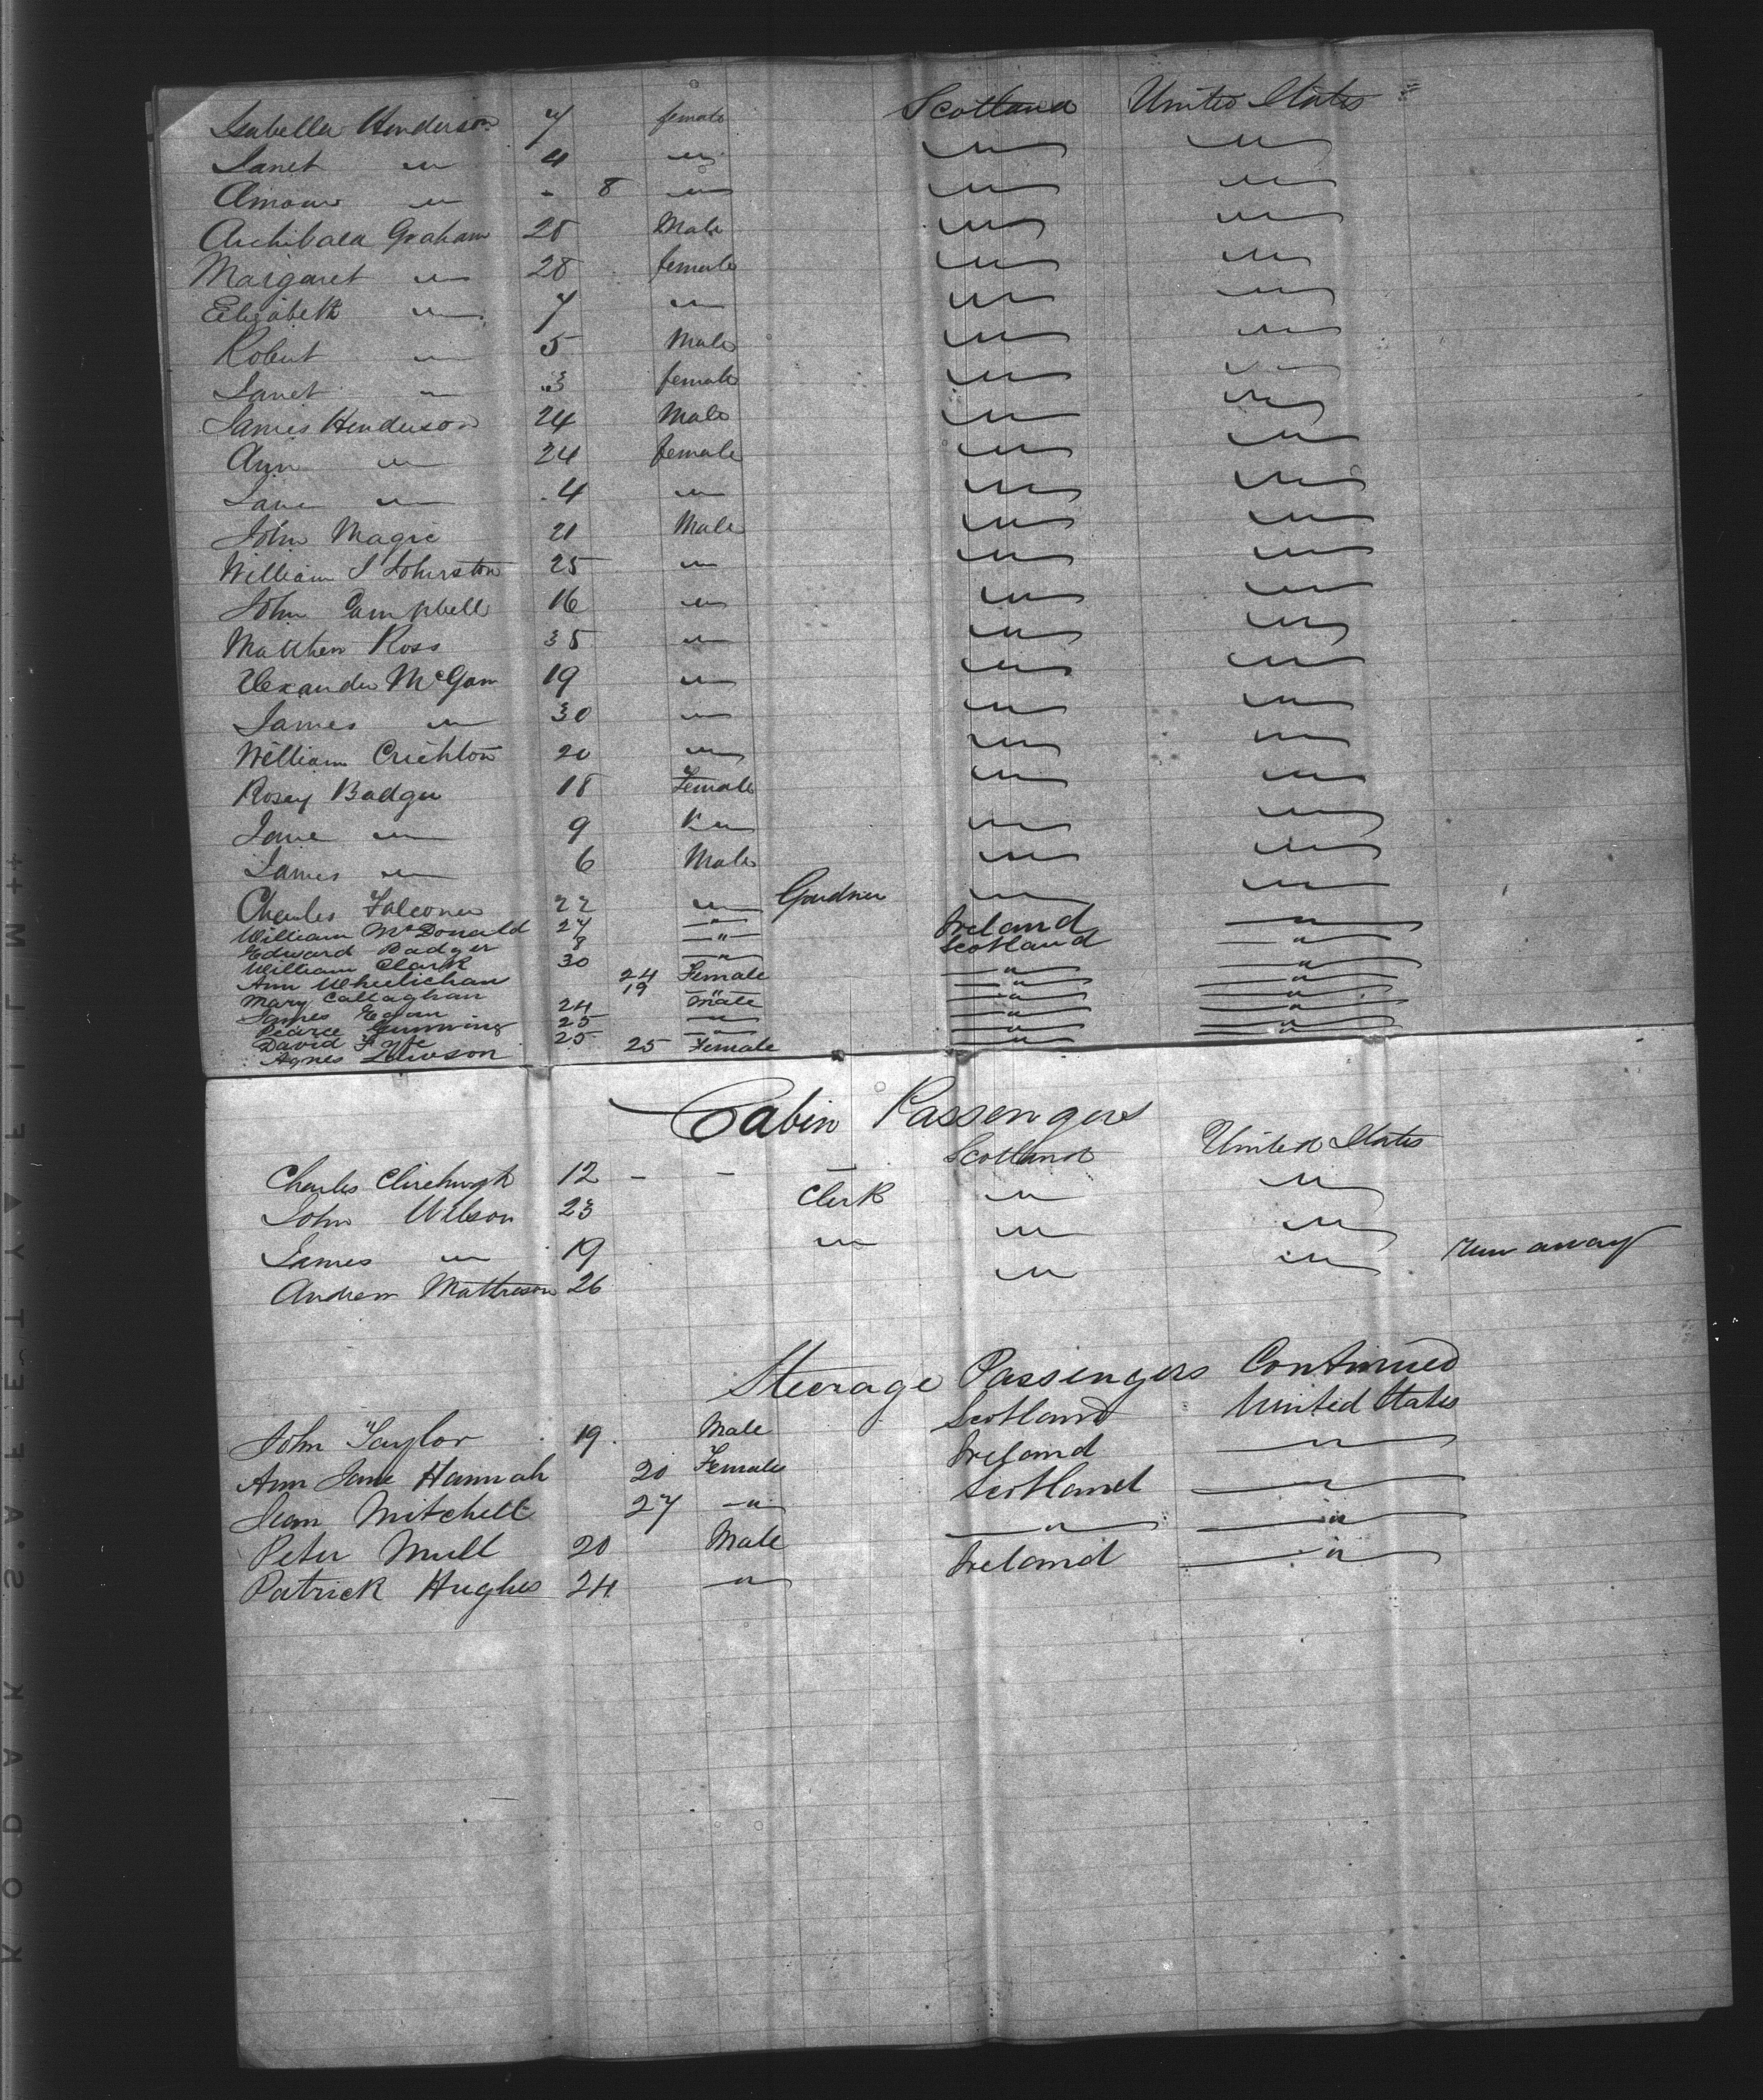 Isabella Henderson 7 female Scotland United States
Janet " 4 " " "
" - 8 " " "
Archibald Graham 28 Male " "
Margaret " 28 female " "
Elizabeth " 7 " " "
Robert " 5 Male " "
Janet " 3 female " "
James Henderson 24 Male " "
Ann " 24 female " "
Jane " 4 " " "
John Magie 21 Male " "
William J Johnston 25 " " "
John Campbell 16 " " "
Matthew Ross 35 " " "
Alexander McGaw 19 " " "
James " 30 " " "
William Crichton 20 " " "
Rosey Badger 18 Female " "
Jane " 9 " " "
James " 6 Male " "
Charles Falconer 22 " Gardner " "
William McDonald 27 " Ireland "
Edward Badger 8 " Scotland "
William Clark 30 " " "
Ann 24 Female " "
Mary Callaghan 19 " " "
James Egan 24 Male " "
Pearce Cumming 25 " " "
David Fyfe 25 " " "
Agnes Lawson 25 Female " "
Cabin Passengers
Charles 12 - - - Scotland United States
John Wilson 23 Clerk " "
James " 19 " " "
Andrew Mathieson 26 " " run away
Steerage Passengers Continued
John Taylor 19 Male Scotland United States
Ann Jane Hannah 20 Female Ireland "
Jean Mitchell 27 " Scotland "
Peter Mull 20 Male " "
Patrick Hughes 24 " Ireland "
KODAK
SAFETY
FILM